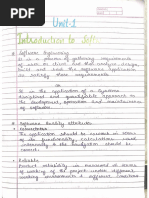 Unit:1
Introduction to Soft
Software Engineering
It is a process of gathering requirements
of
and test the software application
to satisfy these requirements
OR
It is the application of a systematic
disciplined and quantifiable approach on
the development, operation and maintenance
of software.
Software Quality Attributes
Correctness
The application should be correct in terms
of its functionality, calculations
internally & the navigation should be
correct.
Reliable
Product reliability is measured in terms
of working of the project under different
working environment & different conditions.